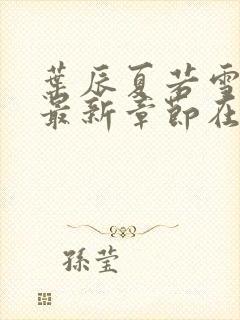 葉辰夏若雪
最新章節在
孫莹